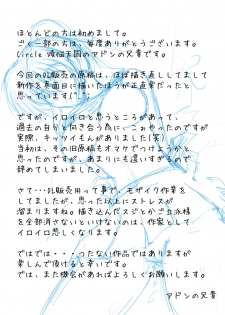 ほとんどの方は初めまして。
ごく一部の方は、毎度ありがとうございます。
Circle 破滅天回のアドンの兄貴です。
今回のDL販売の原稿は、ほぼ描き直ししてまして
新作を真面目に描いたほうが正直楽だったと
思っています(^_^;)
ですが、イロイロと思うところがあって、
過去の自分と向き合う為に、こーゆかったのですが
実際、キッツイもんがありました(笑)
当初は、その旧原稿もオマケでつけようかと
思ったのですが、あまりにも違いすぎるので
辞めてしまいました。
さて・・・DL販売用って事で、モザイク作業を
してましたが、思った以上にストレスが
溜まりますねっ描き込んだスジとかご立派様
を全部消さないといけないのは、作家として
イロイロ悲しくなります。
ではでは・・・つたない作品ではありますが
楽しんで頂けると幸いです。
では、また機会があればよろしくお願いします。
アドンの兄貴